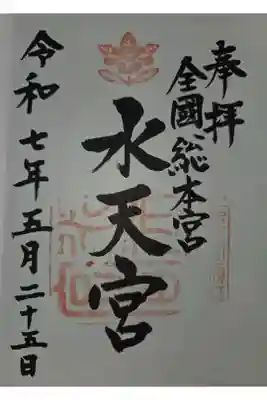 奉拝
全國総本宮
水天宮
令和七年五月二十五日